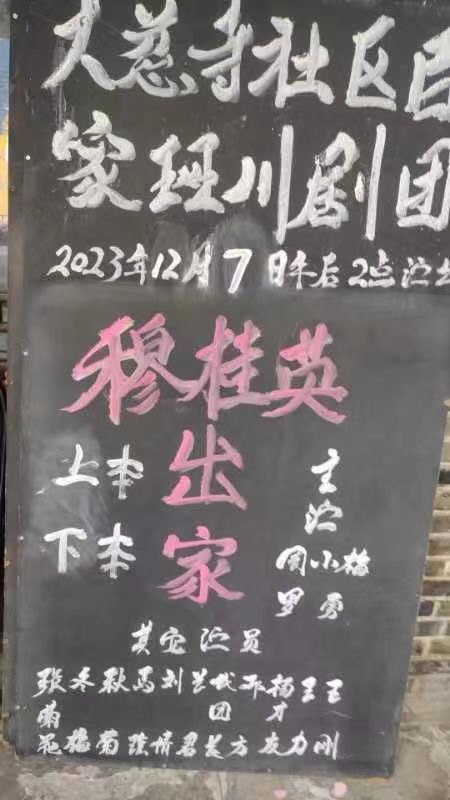 大慈寺社区
家班川剧团
2023年12月7日午后2点演出
穆桂英
出家
上本
下本
主演
周小梅
罗勇
其它演员
张冬秋马刘兰代邓杨王王
菊 团 才
花梅菊瑛倩君长方友力刚